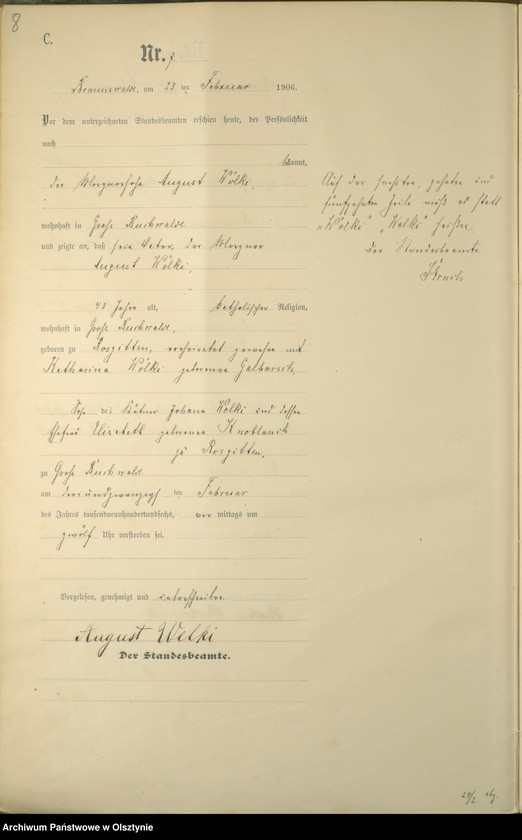 8
C.
Nr. 7
Braunswalde, am 23 ten Februar 1906.
Vor dem unterzeichneten Standesbeamten erschien heute, der Persönlichkeit
nach
bekannt,
der August Wölki,
wohnhaft in Groß Buchwalde
und zeigte an, daß sein Vater, der
August Wölki,
48 Jahre alt, katholischer Religion,
wohnhaft in Groß Buchwalde,
geboren zu Rosgitten, verheiratet gewesen mit
Katharina Wölki geborenen
Sohn des Johann Welki und dessen
Ehefrau Elisabeth geborenen Knoblauch
zu Rosgitten,
zu Groß Buchwalde
am dreiundzwanzigsten Februar
des Jahres tausendneunhundertundsechs, vor mittags um
zwölf Uhr verstorben sei.
Vorgelesen, genehmigt und unterschrieben
August Welki
Der Standesbeamte.
Auf der sechsten, zehnten und
fünfzehnten Zeile muß es statt
„Wölki" „Welki" heißen
Der Standesbeamte
24/2
Archiwum Państwowe w Olsztynie